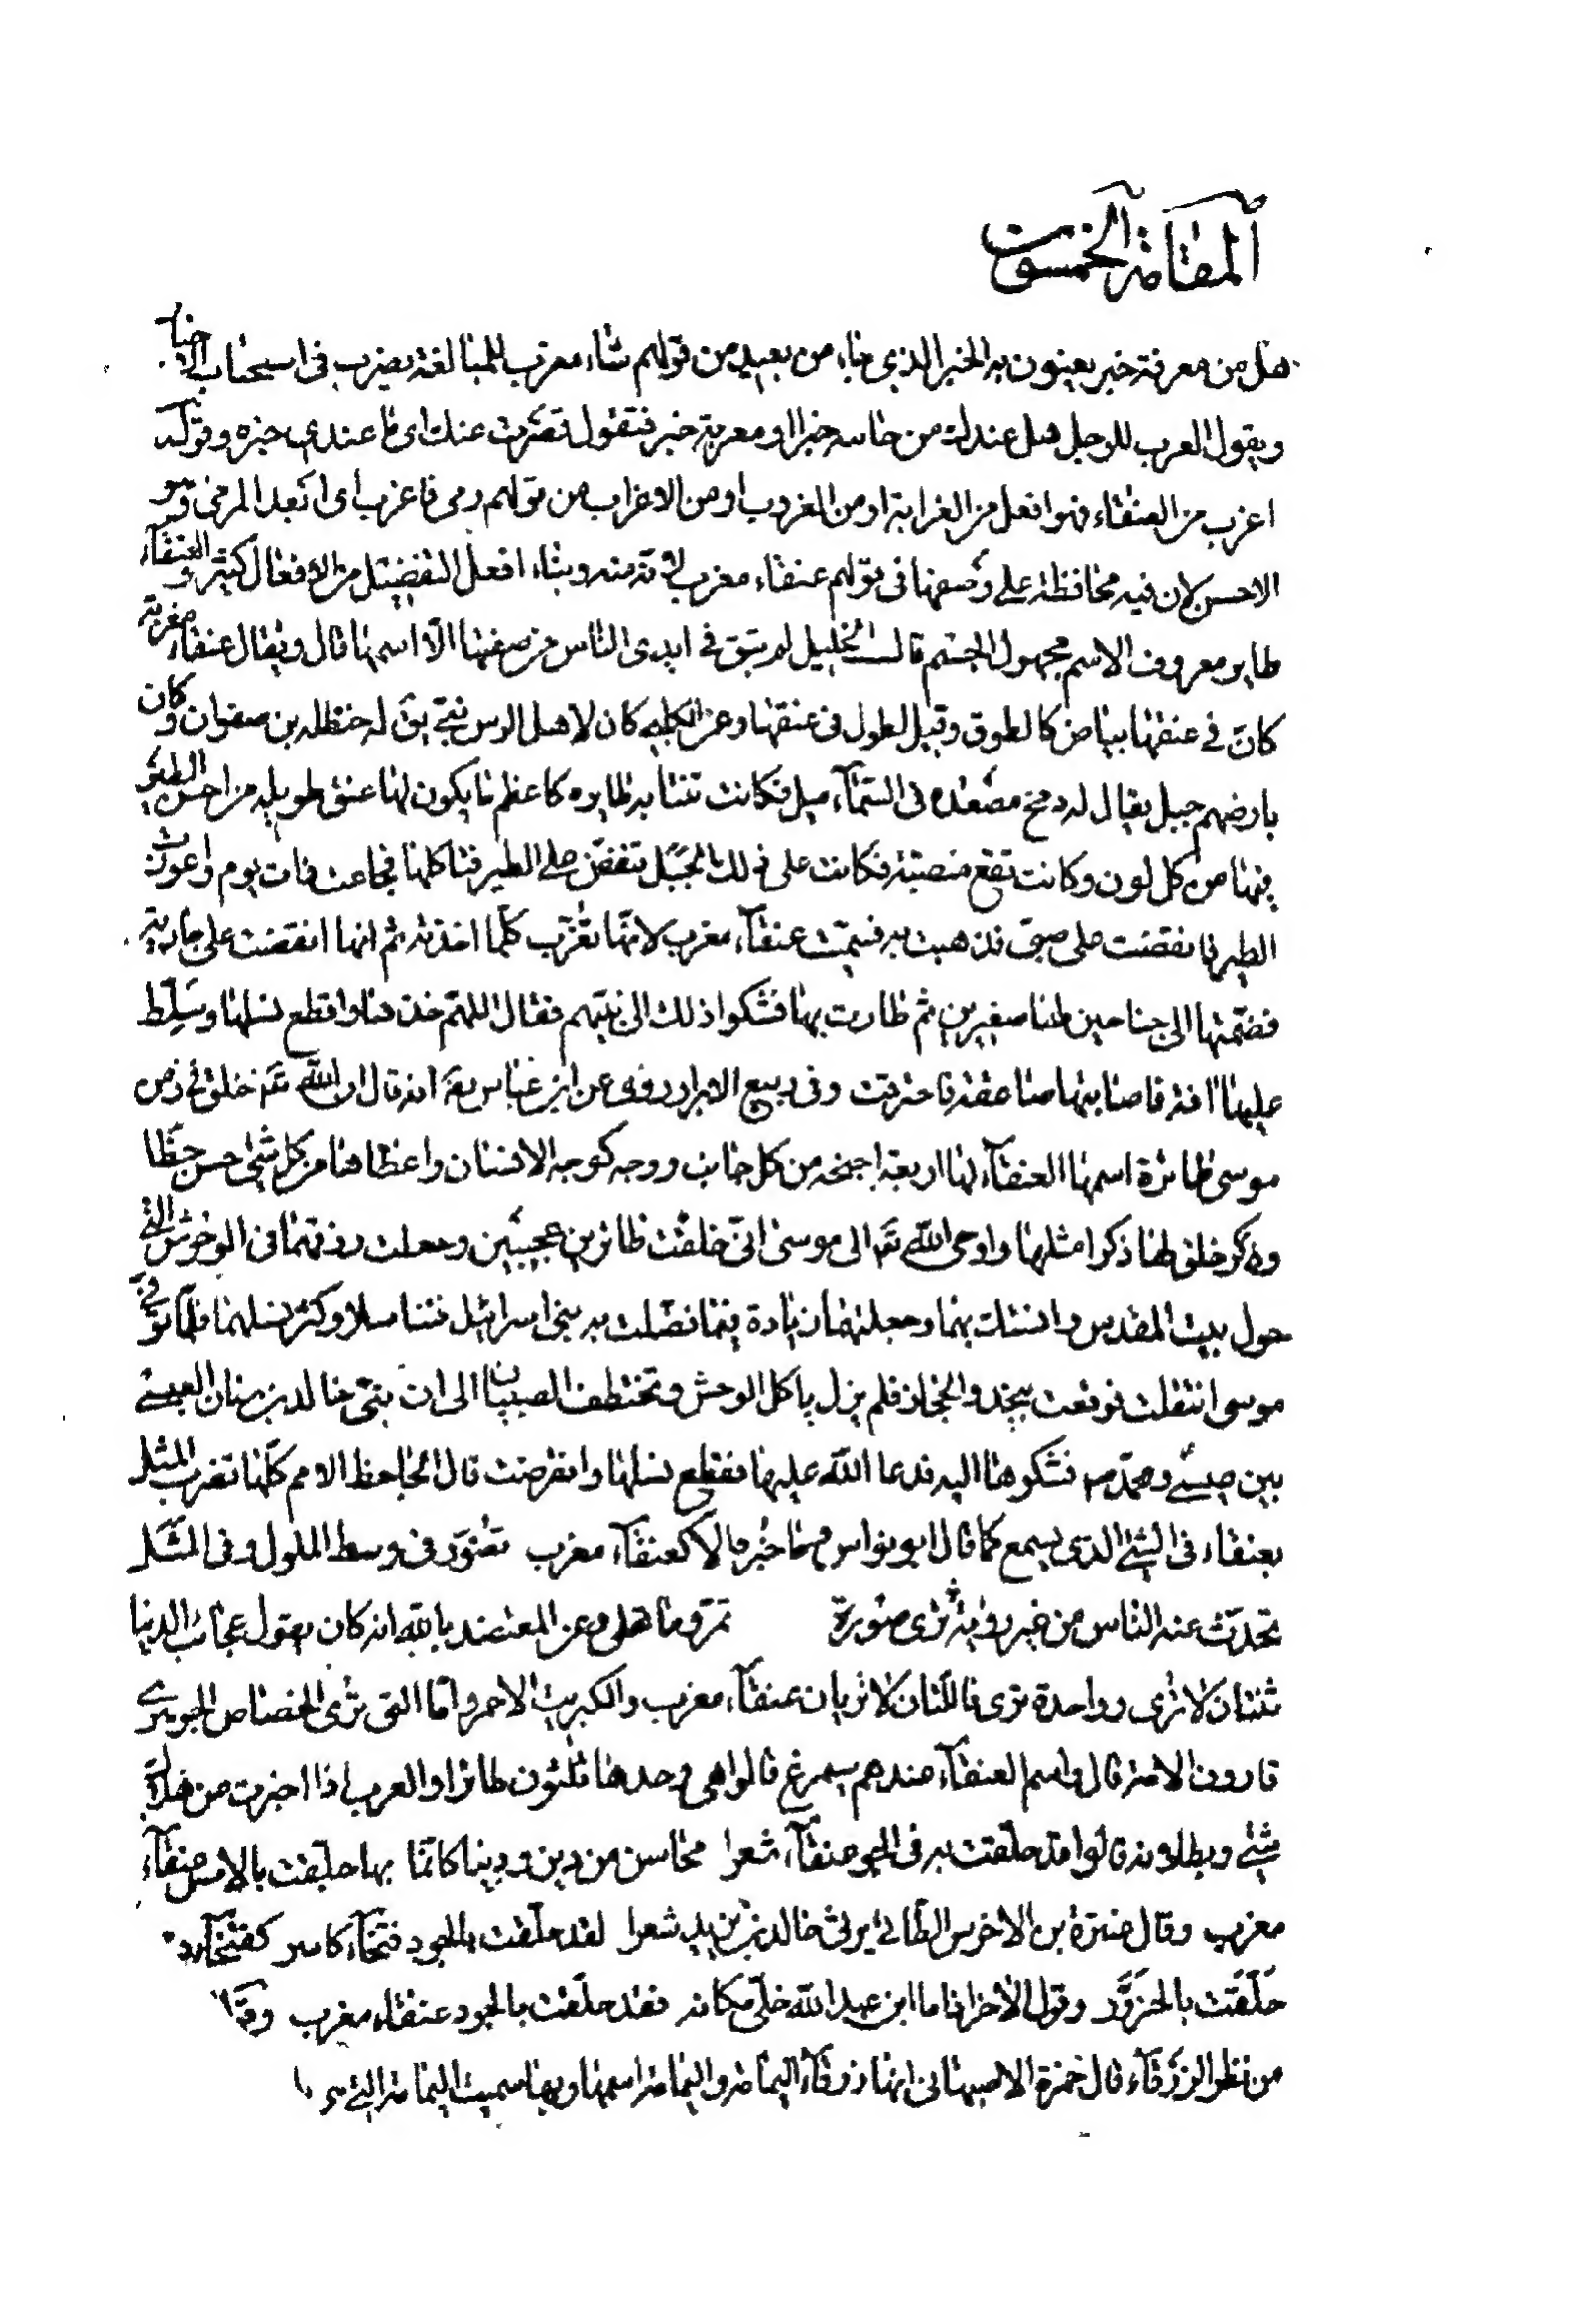 المقامة الخمسون
هل من معرفة خبر يعنون به الخبر الذي جاء من بعيد من قولهم شاء مغرب للمبالغة يضرب في استجناب الاخبار
ويقول العرب للرجل هل عندك من جاسه خبر او مغربة خبر فتقول قصرت عنك اى ما عندى خبره وقوله
اغرب من العنقاء فهو افعل من الغرابة او من الغروب او من الاغراب من قولهم رمى فاغرب اى ابعد المرمى وهو
الاحسن لان فيه محافظة على وصفها في قولهم عنقاء مغرب لانه منه وبناء افعل التفضيل من الافعال كثير والعنقاء
طاير معروف الاسم مجهول الجسم قال الخليل لم يبق في ايدى الناس من صفتها الا اسمها قال ويقال عنقاء مغربة
كان في عنقها بياض كالطوق وقيل لطول في عنقها وعن الكلبي كان لاهل الرس نبي يق له حنظله بن صفوان وكان
بارضهم جبل يقال له دمخ مصعده في السماء ميل فكانت تنتابه طايره كاعظم ما يكون لها عنق طويله من احسن الطير
فيها من كل لون وكانت تقع منصبة فكانت على ذلك الجبل تنقض على الطير فتاكلها فجاعت ذات يوم واعوزت
الطير فانقضت على صبي فذهبت به فسميت عنقاء مغرب لانها تغرب كلما اخذته ثم انها انقضت على جارية
فضمتها الى جناحين لها صغيرين ثم طارت بها فشكوا ذلك الى نبيهم فقال اللهم خذها واقطع نسلها وسلط
عليها افة فاصابتها صاعقة فاحترقت وفى ربيع الابرار روى عن ابن عباس رض انه قال ان الله تع خلق في زمن
موسى طائرة اسمها العنقاء لها اربعة اجنحه من كل جانب ووجه كوجه الانسان واعطاها من كل شئ حسن حظا
وذكر خلق لها ذكرا مثلها واوحى الله تع الى موسى انى خلقت طائرين عجيبين وجعلت رزقهما في الوحوش التى
حول بيت المقدس وانستك بهما وجعلتهما زيادة فيما فضلت به بنى اسرائيل فتناسلا وكثر نسلهما فلما توفى
موسى انتقلت فوقعت بنجد والحجاز فلم يزل ياكل الوحش وتختطف الصبيان الى ان نبئ خالد بن سنان العبسى
بين عيسى ومحمد ص فشكوها اليه فدعا الله عليها فقطع نسلها وانقرضت قال الجاحظ الامم كلها تضرب المثل
بعنقاء في الشئ الذى يسمع كما قال ابو نواس وما خبزه الا كعنقاء مغرب تصور في وسط الملول وفى المثل
تحدث عنه الناس من غير روية ترى صورة تمر وما تحلى وعن المعتضد بالله انه كان يقول عجائب الدنيا
ثنتان لا ترى وواحدة ترى فاللتان لا تريان عنقاء مغرب والكبريت الاحمر واما التى ترى
قال واسم العنقاء عندهم سيمرغ قالوا هي وحدها ثلثون طائرا والعرب اذا اخبرت من هلاك
شئ وبطلانه قالوا قد حلقت به في الجو عنقاء شعرا محاسن من دين ودنيا كانما بها حلقت بالامس عنقاء
مغرب وقال عنترة بن الاخرس الطائى يرثى خالد بن يزيد شعرا لقد حلقت بالجود فتخاء كاسر كفتخاء
حلقت بالحزور وقول الاخر اذا ما ابن عبد الله خلى مكانه فقد حلقت بالجود عنقاء مغرب
من نظر الزرقاء قال حمزة الاصبهانى انها زرقاء اليمامة واليمامة اسمها وبها سميت اليمامة